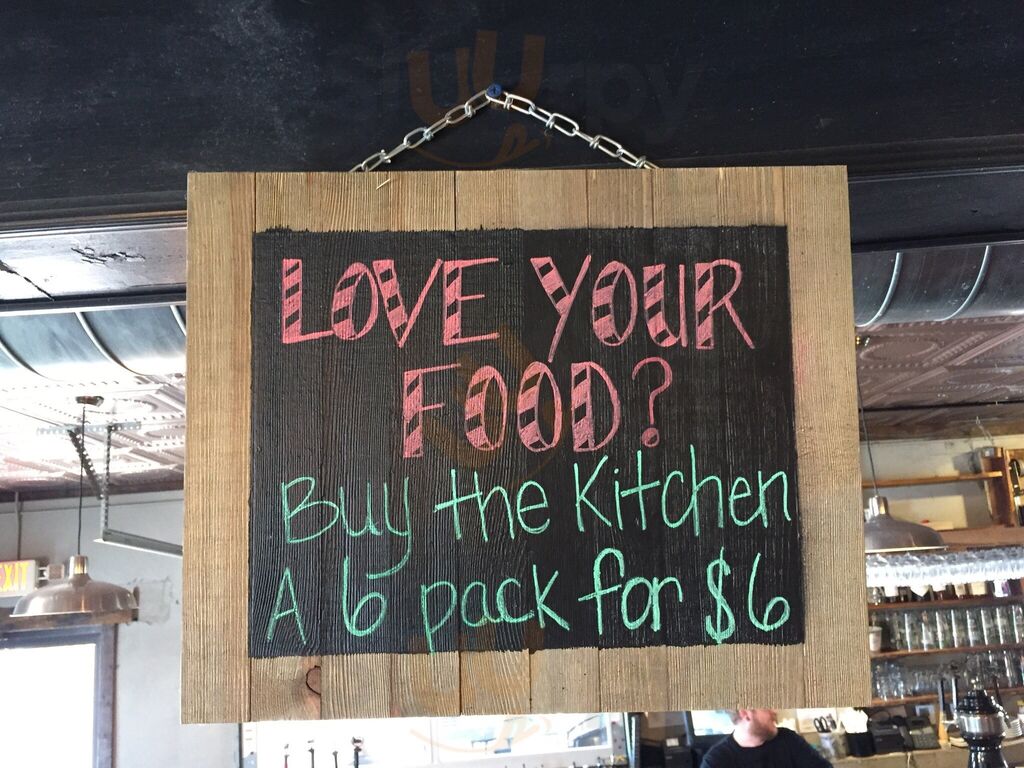 LOVE YOUR
FOOD?
Buy the Kitchen
A 6 pack for $6
EXIT